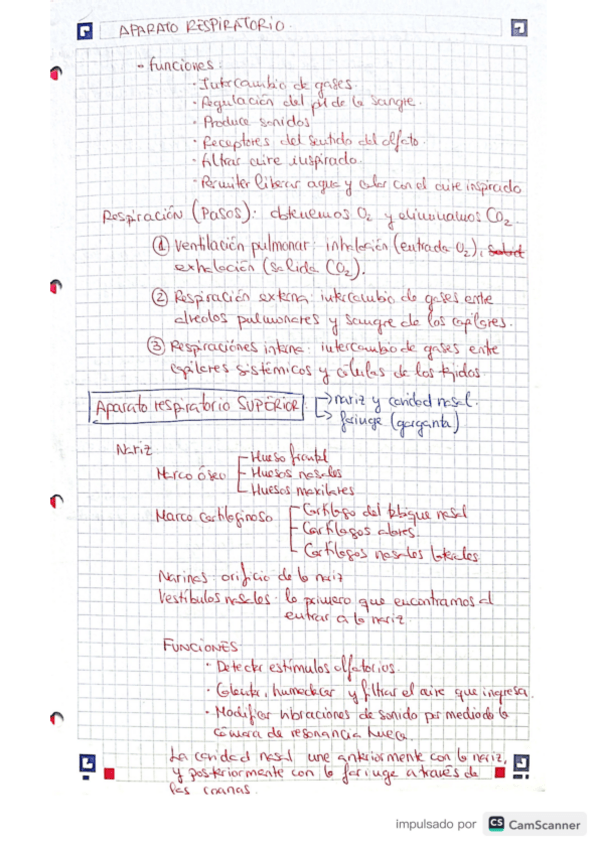 APARATO RESPIRATORIO.
- funciones:
· Intercambio de gases.
· Regulación del pH de la sangre.
· Produce sonidos
· Receptores del sentido del olfato.
· filtrar aire inspirado.
· Permiter liberar agua y calor con el aire inspirado
Respiración (Pasos): obtenemos O2 y eliminamos CO2.
① Ventilación pulmonar: inhalación (entrada O2),
exhalación (Salida CO2).
② Respiración externa: intercambio de gases entre
alveolos pulmonares y sangre de los capilares.
③ Respiraciónes interna: intercambio de gases entre
capilares sistémicos y células de los tejidos
Aparato respiratorio SUPERIOR → nariz y cavidad nasal.
→ faringe (garganta)
Nariz
Hueso frontal
Marco óseo Huesos nasales
Huesos maxilares
Cartílago del tabique nasal
Marco cartilaginoso Cartílagos alares
Cartílagos nasales laterales
Narinas: orificio de la nariz
Vestíbulos nasales: lo primero que encontramos al
entrar a la nariz
FUNCIONES
· Detectar estímulos olfatorios.
· Calentar, humedecer y filtrar el aire que ingresa.
· Modificar vibraciones de sonido por medio de la
cámara de resonancia hueca.
La cavidad nasal une anteriormente con la nariz,
y posteriormente con la faringe a través de
las coanas.
impulsado por CS CamScanner